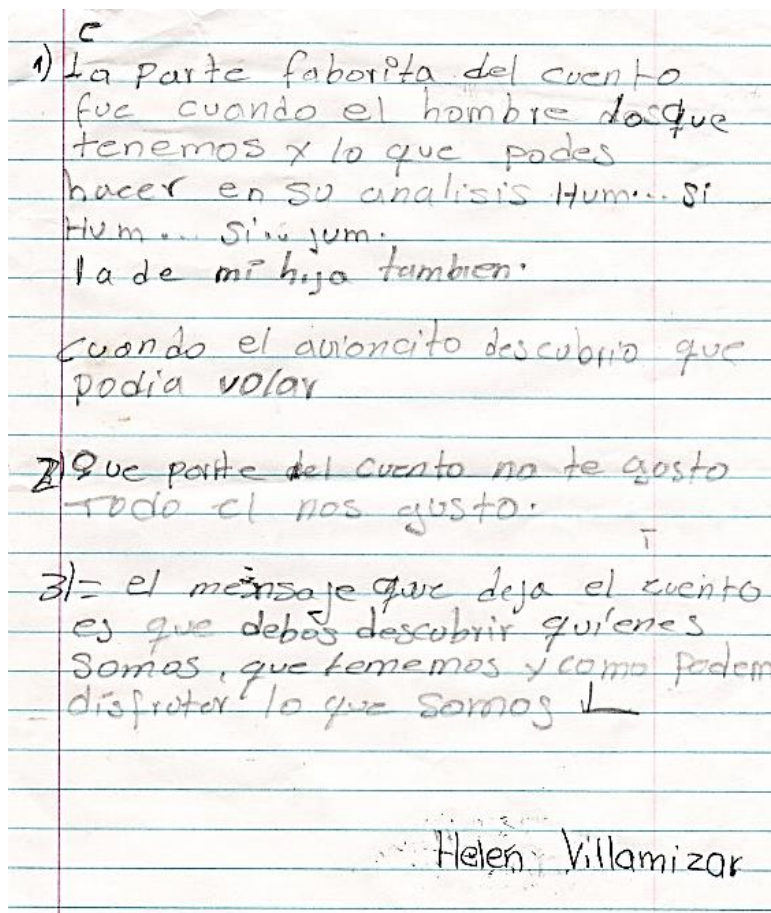 e
1) La parte faborita del cuento
fue cuando el hombre losque
tenemos y lo que podes
hacer en su analisis Hum... si
Hum... si... jum.
la de mi hija tambien.
cuando el avioncito descubrio que
podia volar
2) Que parte del cuento no te gosto
Todo el nos gusto.
3)= el mensaje que deja el cuento
es que debos descubrir quienes
somos, que tememos y como Podem
disfrutar lo que somos
Helen Villamizar